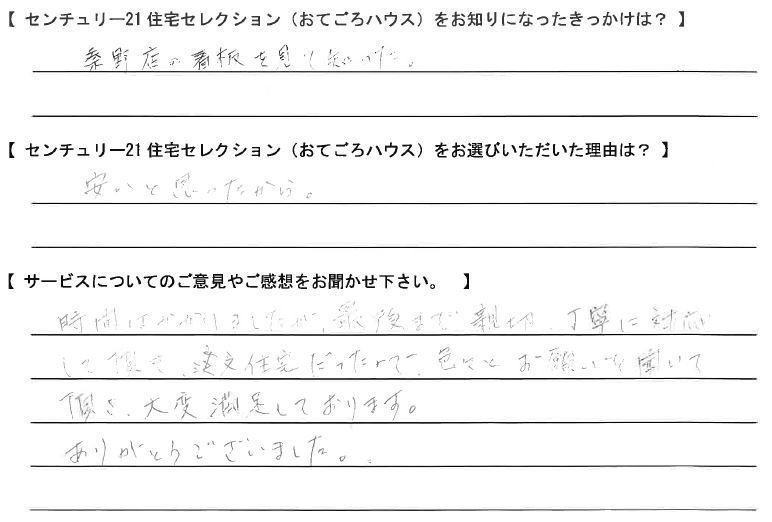 【 センチュリー21 住宅セレクション（おてごろハウス）をお知りになったきっかけは？ 】
秦野店の看板を見て知った。
【 センチュリー21 住宅セレクション（おてごろハウス）をお選びいただいた理由は？ 】
安いと思ったから。
【 サービスについてのご意見やご感想をお聞かせ下さい。 】
時間はかかりましたが、最後まで親切、丁寧に対応
して頂き、注文住宅だったので、色々とお願いを聞いて
頂き、大変満足しております。
ありがとうございました。